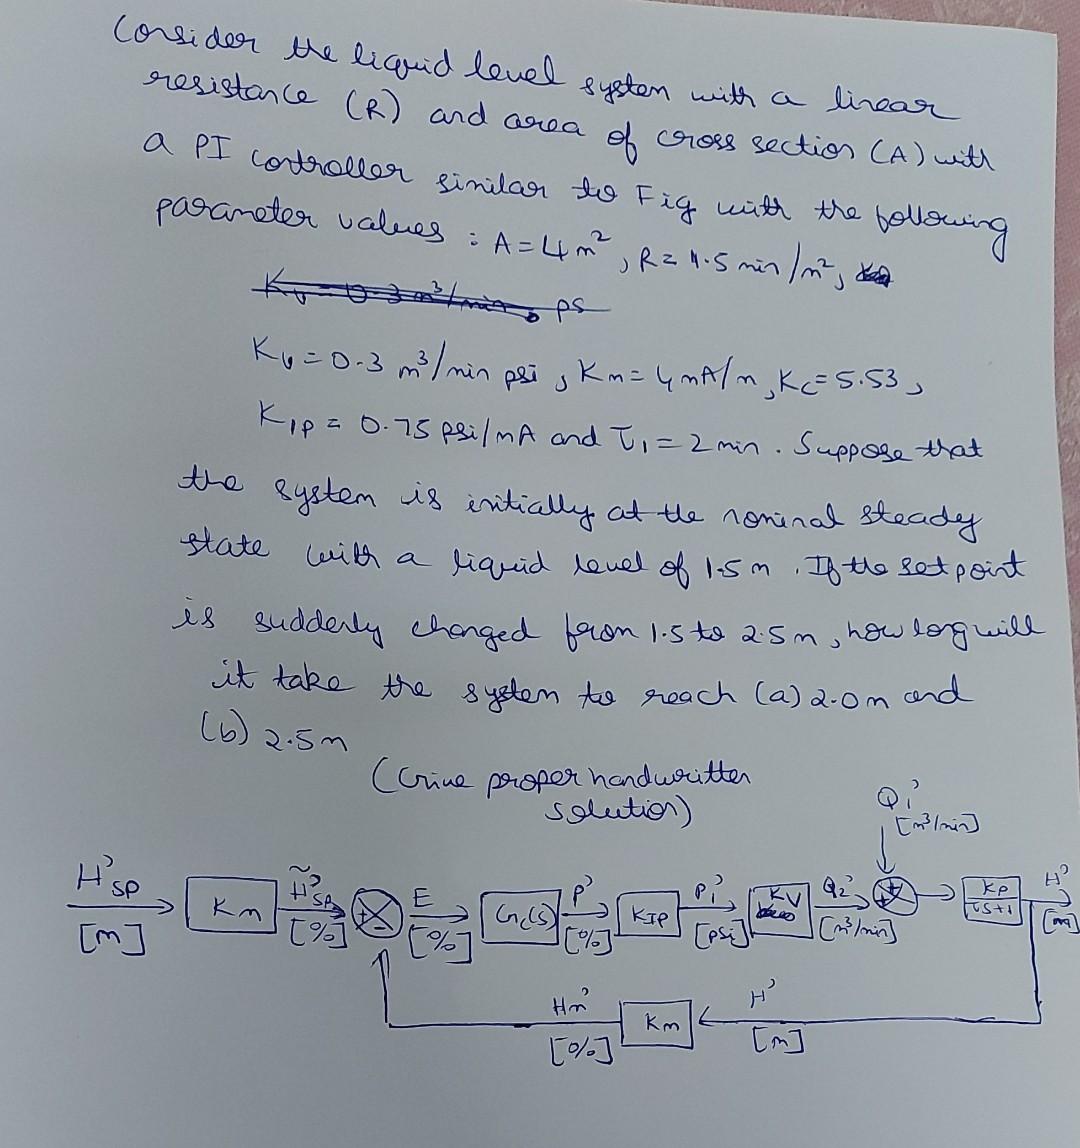 Consider the liquid level system with a linear
resistance (R) and area of cross section (A) with
a PI controller similar to Fig with the following
parameter values : A = 4 m², R = 1.5 min/m²,
Kv = 0.3 m³/min. ps
Kv = 0.3 m³/min psi, Km = 4 mA/m, Kc = 5.53,
KIP = 0.75 psi/mA and τ1 = 2 min. Suppose that
the system is initially at the nominal steady
state with a liquid level of 1.5 m. If the set point
is suddenly changed from 1.5 to 2.5 m, how long will
it take the system to reach (a) 2.0 m and
(b) 2.5 m
(Give proper handwritten
solution)
Q1'
[m³/min]
H'SP [m] Km H̃'SP [%] E [%] Gc(s) P' [%] KIP P1' [psi] KV Q2' [m³/min] KP/τs+1 H' [m]
Hm' [%] Km H' [m]